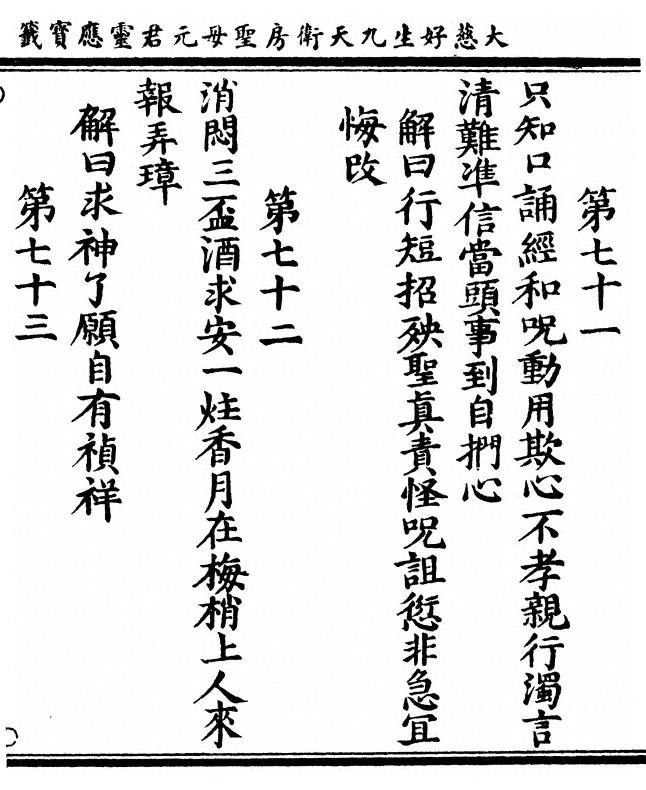 大慈好生九天衛房聖母元君靈應寶籤
第七十一
只知口誦經和呪動用欺心不孝親行濁言
清難準信當頭事到自捫心
解曰行短招殃聖真責怪呪詛愆非急宜
悔改
第七十二
消悶三盃酒求安一炷香月在梅梢上人來
報弄璋
解曰求神了願自有禎祥
第七十三